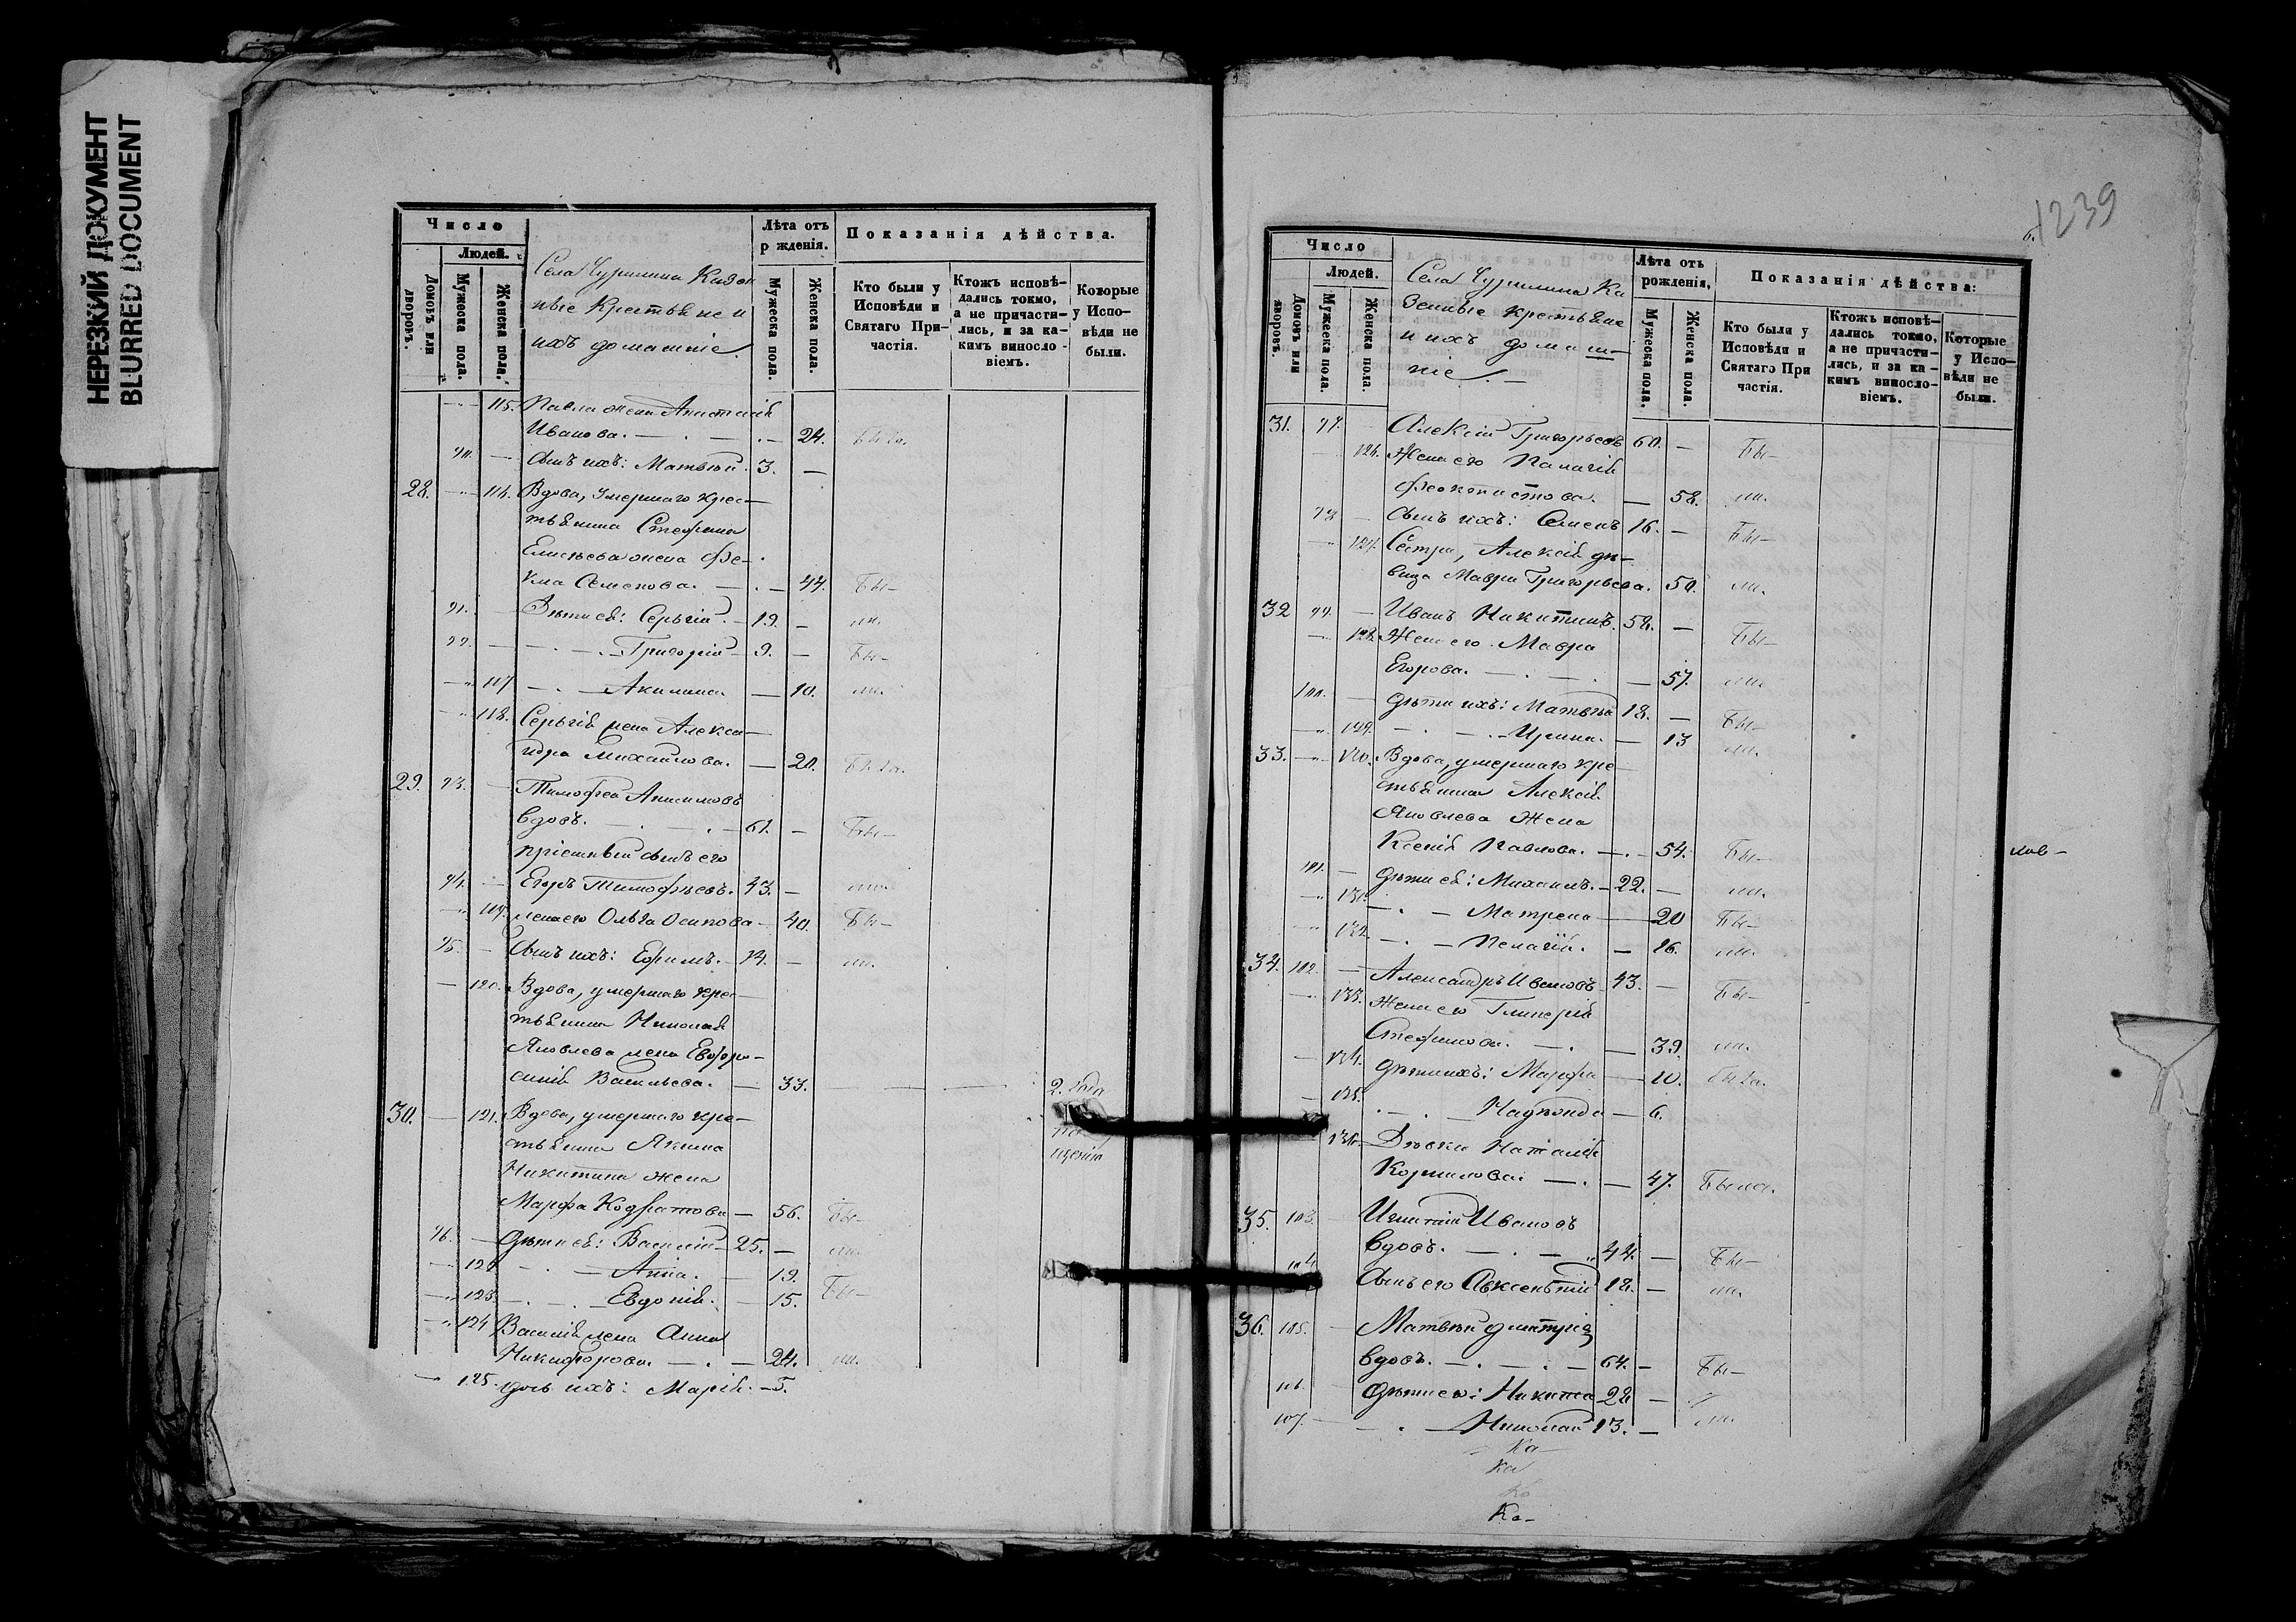 НЕРЕЗКИЙ ДОКУМЕНТ
BLURRED DOCUMENT
Число
Людей.
Домовъ или дворовъ.
Мужеска пола.
Женска пола.
Села Чурилина Казен
ные Крестьяне и
ихъ домашніе.
Лѣта отъ
р жденія.
Мужеска пола.
Женска пола.
Показанія дѣйства.
Кто были у Исповѣди и Святаго Причастія.
Ктожъ исповѣдались токмо, а не причастились, и за какимъ винословіемъ.
Которые у Исповѣди не были.
115. Павла жена Анастасія
Иванова. — 24. Была.
90. — Сынъ ихъ: Матвѣй. 3. —
28. — 116. Вдова, умершаго крес—
тьянина Стефана
Елисѣева жена Фе—
кла Семенова. — 44. Бы—
91. — Дѣти ея: Сергій. — 19. — ли.
92. — Григорій — 9. — Бы—
117 — Акилина. — 10. ли.
118. Сергія жена Алекса—
ндра Михайлова. — 20. Была.
29. 93. — Тимофей Анисимовъ
вдовъ. — 61. — Бы—
пріемный сынъ его
94. — Егоръ Тимофѣевъ. 43. — ли.
119. жена его Ольга Осипова — 40. Бы—
95. — Сынъ ихъ: Ефимъ. — 14. — ли.
120. Вдова, умершаго крес—
тьянина Николая
Яковлева жена Евфро—
синія Васильева. — 33. — 2. года
щенію
30. — 121. Вдова, умершаго кре—
стьянина Якима
Никитина жена
Марфа Кодратова — 56. Бы—
96. — Дѣти ея: Василій — 25. — ли.
122 — Анна. — 19. Бы—
123. — Евдокія. — 15.
124 Василія жена Анна
Никифорова. — 24. ли.
125. дочь ихъ: Марія. — 5.
1239
6.
Число
Людей.
Домовъ или дворовъ.
Мужеска пола.
Женска пола.
Села Чурилина Ка
зенные крестьяне
и ихъ домаш—
ніе. —
Лѣта отъ
рожденія,
Мужеска пола.
Женска пола.
Показанія дѣйства:
Кто были у Исповѣди и Святаго При частія.
Ктожъ исповѣдались токмо, а не причастились, и за какимъ винословіемъ.
Которые у Исповѣди не были.
31. 97. Алексій Григорьевъ 60. — Бы—
126. Жена его Палагія
Феоктистова. — 58. ли.
98 — Сынъ ихъ: Семенъ 16. — Бы—
127. Сестра, Алексія дѣ—
вица Мавра Григорьева. 50. ли.
32 99. — Иванъ Никитинъ. 58. — Бы—
128. Жена его Мавра
Егорова. — 57. ли.
100. — Дѣти ихъ: Матвѣй 18. — Бы—
129. — Ирина. — 13 ли.
33. — 130. Вдова, умершаго кре—
стьянина Алексія
Яковлева Жена
Ксенія Павлова. — 54. Бы—
лов—
101. — Дѣти ея: Михаилъ. — 22. — ли.
131. — Матрена — 20 Бы—
132. — Пелагія. — 16. ли.
34. 102. — Александръ Ивановъ 43. — Бы—
133. Жена его Гликерія
Стефанова. — 39. ли.
134. Дѣти ихъ: Марфа — 10. Была.
135. — Надежда — 6.
136. Дѣвка Наталія
Корнилова. — 47. Была.
35. 103. Игнатій Ивановъ
вдовъ. — 44. — Бы—
104 Сынъ его Авксентій 18. — ли.
36. 105. — Матвѣй Дмитріев
вдовъ. — 64. — Бы—
106. Дѣти его: Никита 28 —
107. — Николай 13. — ли.
Ка
ка
Ка—